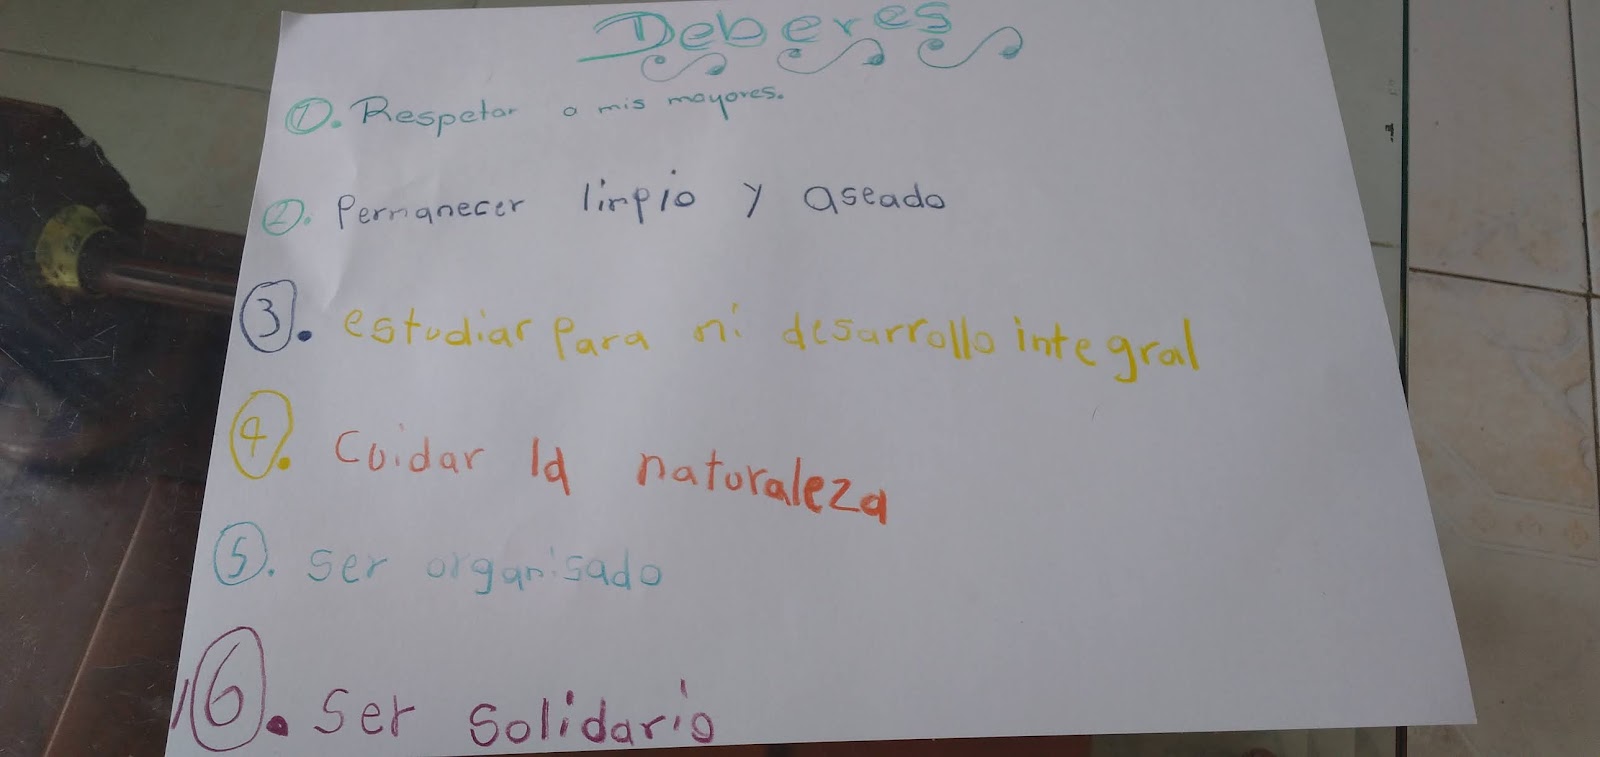 Deberes
1. Respetar a mis mayores.
2. Permanecer limpio y aseado
3. estudiar para mi desarrollo integral
4. Cuidar la naturaleza
5. Ser organisado
6. Ser Solidario